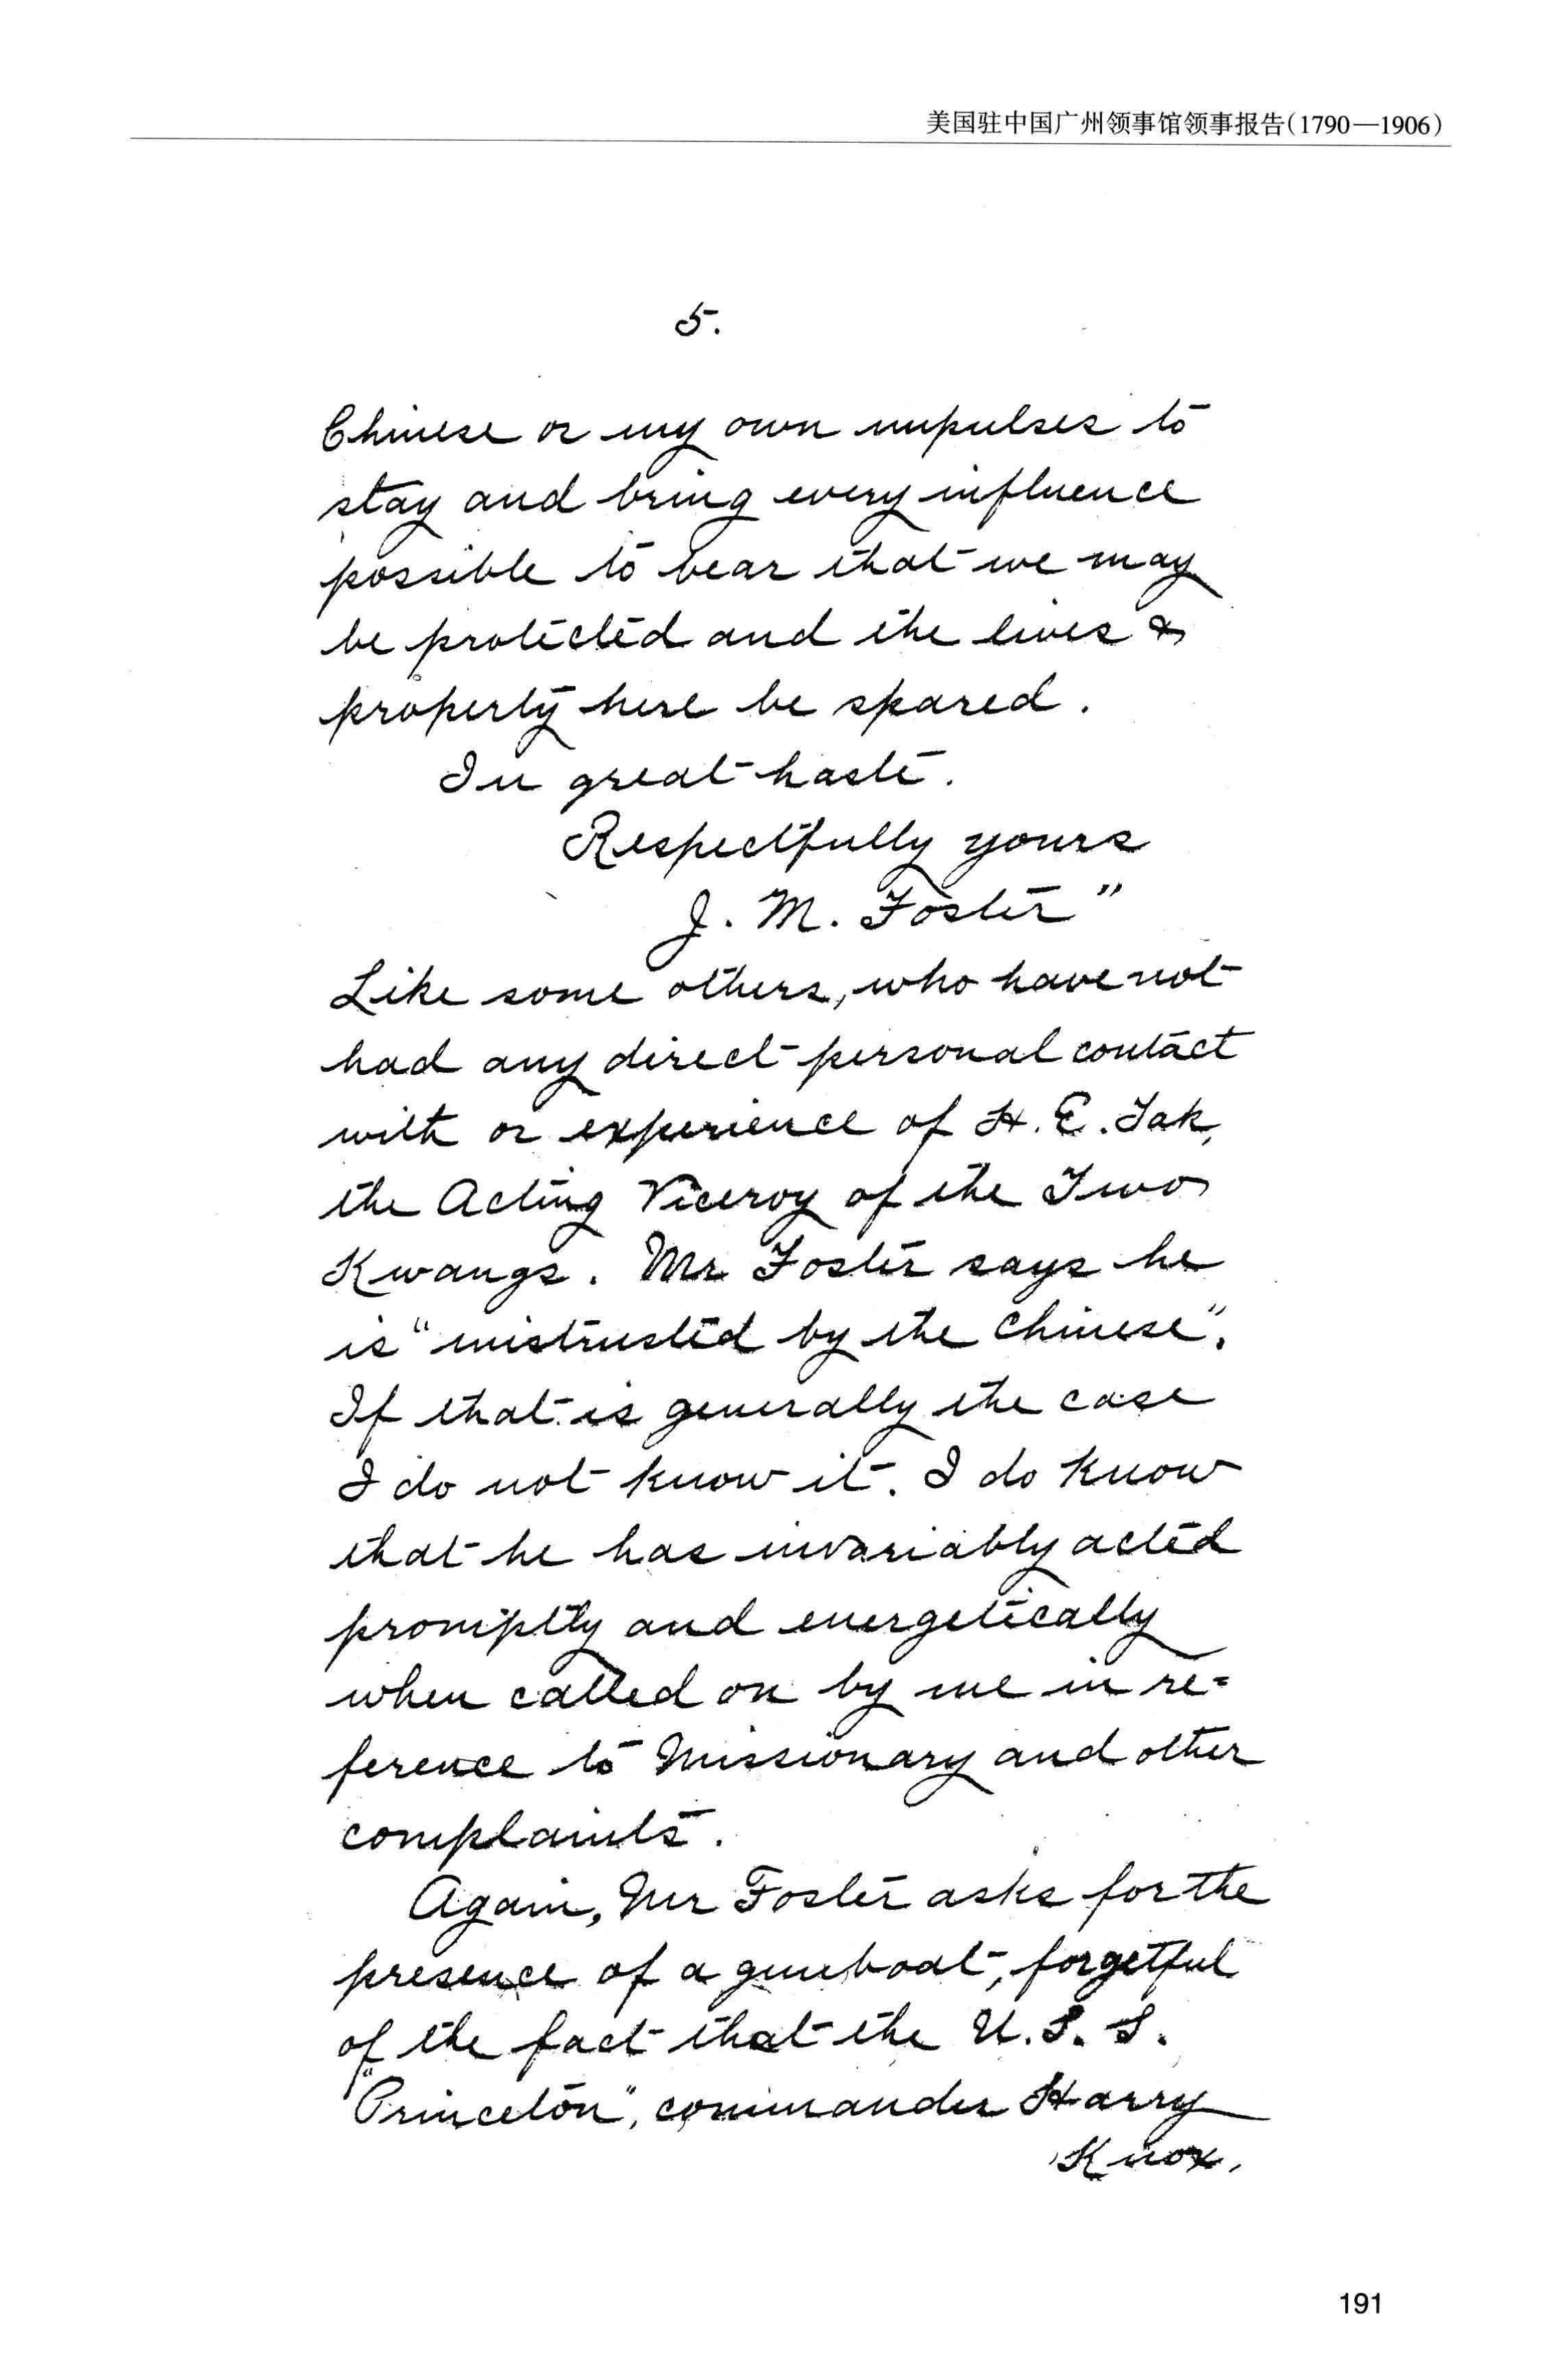 美国驻中国广州领事馆领事报告(1790—1906)
5.
Chinese or my own impulses to
stay and bring every influence
possible to bear that we may
be protected and the lives &
property here be spared.
In great haste.
Respectfully yours
J. M. Foster"
Like some others, who have not
had any direct personal contact
with or experience of H. E. Tak,
the Acting Viceroy of the Two
Kwangs. Mr Foster says he
is "mistrusted by the Chinese".
If that is generally the case
I do not know it. I do know
that he has invariably acted
promptly and energetically
when called on by me in re=
ference to Missionary and other
complaints.
Again, Mr Foster asks for the
presence of a gunboat, forgetful
of the fact that the U. S. S.
"Princeton", commander Harry
Knox,
191